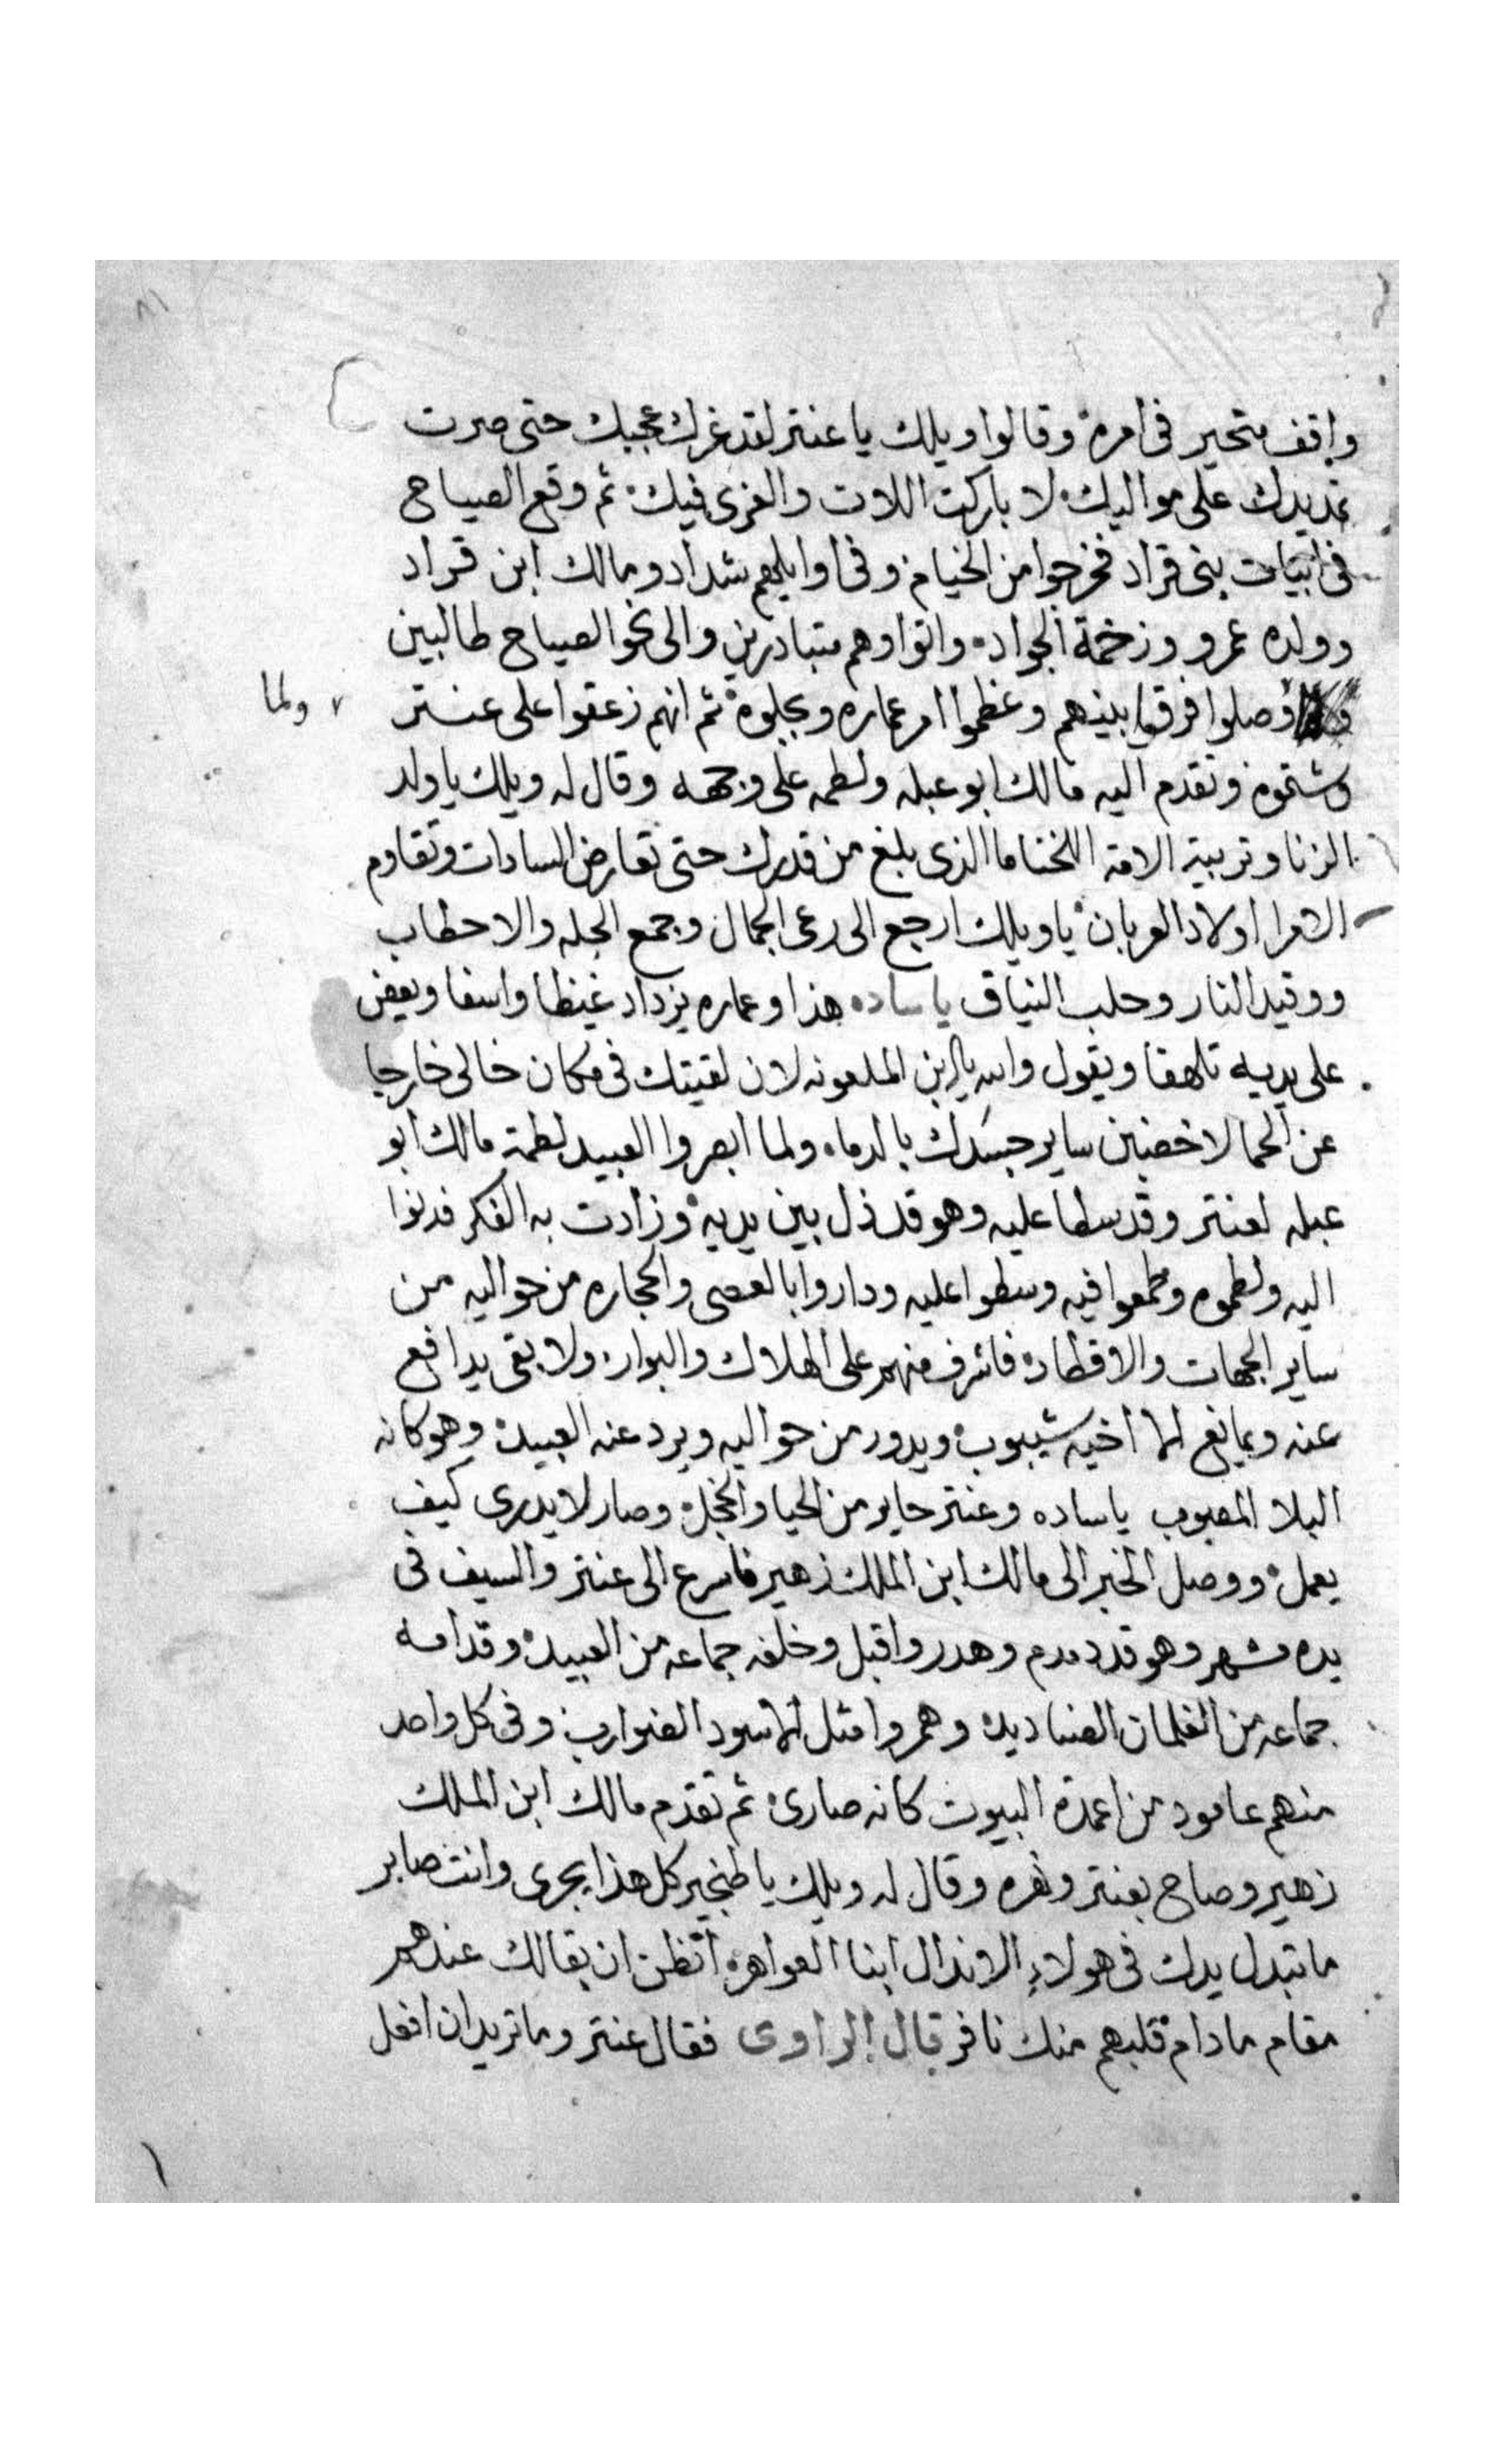 واقف متحير فى امره وقالوا ويلك يا عنتر لقد غرك عجبك حتى صرت
تمد يدك على مواليك لا باركت اللات والعزى فيك ثم وقع الصياح
فى ابيات بنى قراد فخرجوا من الخيام وفى اوايلهم شداد ومالك ابن قراد
وولده عمرو وزخمة الجواد واتوا وهم متبادرين والى نحو الصياح طالبين
ولما
وصلوا فرقوا بينهم وعظموا امر عماره وبجلوه ثم انهم زعقوا على عنتر
وشتموه وتقدم اليه مالك ابو عبله ولطمه على وجهه وقال له ويلك يا ولد
الزنا وتربية الامه اللخنا ما الذى بلغ من قدرك حتى تعارض السادات وتقاوم
الامرا اولاد العربان يا ويلك ارجع الى رعى الجمال وجمع الجله والاحطاب
ووقيد النار وحلب النياق يا ساده هذا وعماره يزداد غيظا واسفا ويعض
على يديه تلهفا ويقول والله يا ابن الملعونه لان لقيتك فى مكان خالى خارجا
عن الحما لاخضبن ساير جسدك بالدماء ولما ابصروا العبيد لطمة مالك ابو
عبله لعنتر وقد سطا عليه وهو قد ذل بين يديه وزادت به الفكر فدنوا
اليه ولطموه وطمعوا فيه وسطوا عليه وداروا بالعصى والحجاره من حواليه من
ساير الجهات والاقطار فاشرف منهم على الهلاك والبوار ولا بقى يدافع
عنه ويمانع الا اخيه شيبوب ويدور من حواليه ويرد عنه العبيد وهو كانه
البلا المصبوب يا ساده وعنتر حاير من الحيا والخجل وصار لا يدرى كيف
يعمل ووصل الخبر الى مالك ابن الملك زهير فاسرع الى عنتر والسيف فى
يده مشهر وهو قد دمدم وهدر واقبل وخلفه جماعه من العبيد وقدامه
جماعه من الغلمان الصناديد وهمروا مثل الاسود الضوارب وفى كل واحد
منهم عامود من اعمدة البيوت كانه صارى ثم تقدم مالك ابن الملك
زهير وصاح بعنتر ونهره وقال له ويلك يا طنجير كل هذا يجرى وانت صابر
ما تبدل يدك فى هولاء الاندال ابنا العواهر اتظن ان بقالك عندهم
مقام ما دام قلبهم منك نافر قال الراوى فقال عنتر وما تريد ان افعل